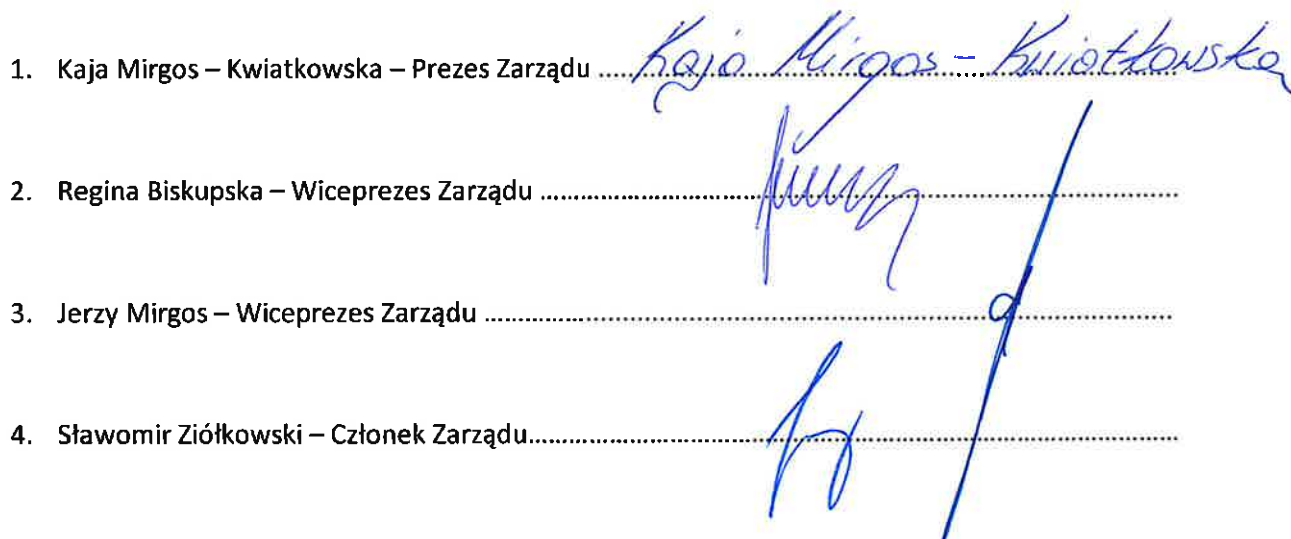 1. Kaja Mirgos – Kwiatkowska – Prezes Zarządu ..... Kaja Mirgos - Kwiatkowska
2. Regina Biskupska – Wiceprezes Zarządu .....
3. Jerzy Mirgos – Wiceprezes Zarządu .....
4. Sławomir Ziółkowski – Członek Zarządu.....